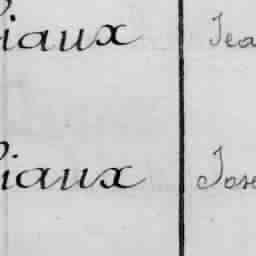 iaux Jea
iaux Jose